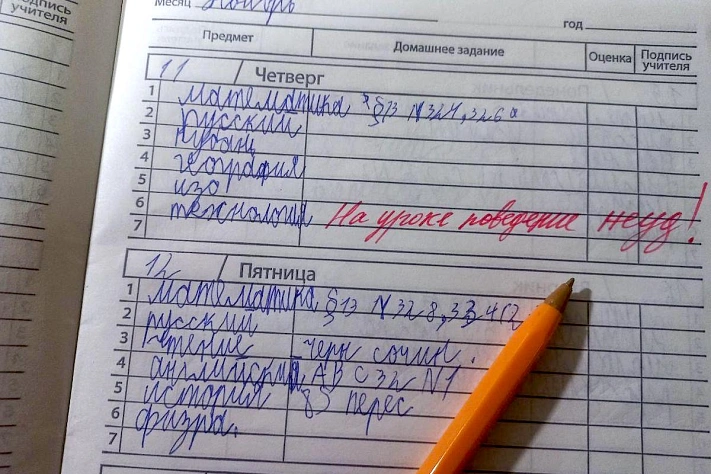 Подпись учителя
Месяц Ноябрь год
Предмет Домашнее задание Оценка Подпись учителя
11 Четверг
1 математика §13 N324, 326а
2 русский
3 Кубан
4 география
5 изо
6 технология На уроке поведение неуд!
7
12 Пятница
1 математика §13 N328, 334(2
2 русский
3 чтение черн сочин.
4 английский АВ С 32 N1
5 история §5 перес
6 физра.
7